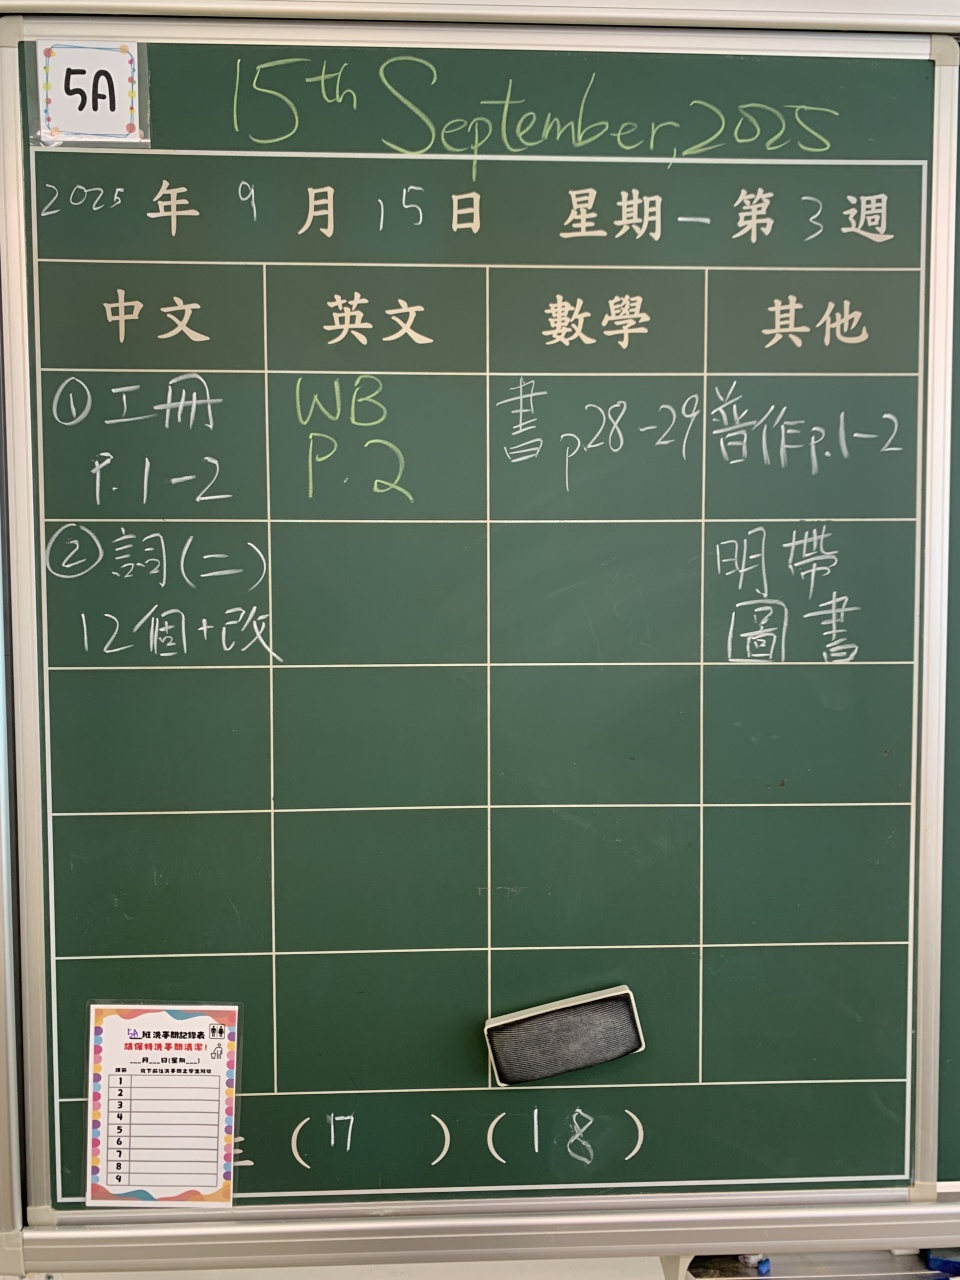 5A
15th September, 2025
2025 年 9 月 15 日 星期一 第 3 週
中文 英文 數學 其他
① 工冊
P.1-2
WB
P.2
書 p.28-29
普作p.1-2
② 詞(二)
12個+改
明帶
圖書
5A 班洗手間記錄表
請保持洗手間清潔!
___月___日(星期___)
課節
1
2
3
4
5
6
7
8
9
(17) (18)